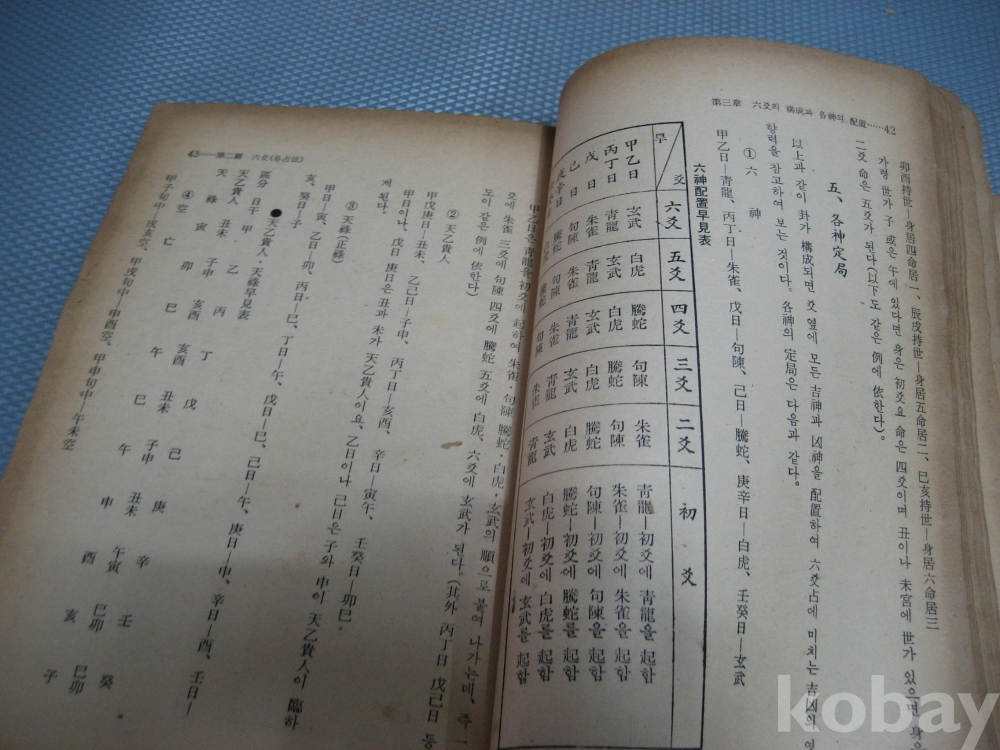 第三章 六爻의 構成과 各神의 配置……42
卯酉持世―身居四命居一、辰戌持世―身居五命居二、巳亥持世―身居六命居三
가령 世가 子 或은 午에 있다면 身은 初爻요 命은 四爻이며 丑이나 未宮에 世가 있으면 身은
二爻 命은 五爻가 된다(以下도 같은 例에 依한다)。
五、各神定局
以上과 같이 卦가 構成되면 爻 옆에 모든 吉神과 凶神을 配置하여 六爻占에 미치는 吉凶의 영
향력을 참고하여 보는 것이다。各神의 定局은 다음과 같다。
① 六 神
甲乙日―青龍、丙丁日―朱雀、戊日―句陳、己日―騰蛇、庚辛日―白虎、壬癸日―玄武
六神配置早見表
早 爻 六爻 五爻 四爻 三爻 二爻 初爻
甲乙日 玄武 白虎 騰蛇 句陳 朱雀 青龍―初爻에 青龍을 起함
丙丁日 青龍 玄武 白虎 騰蛇 句陳 朱雀―初爻에 朱雀을 起함
戊日 朱雀 青龍 玄武 白虎 騰蛇 句陳―初爻에 句陳을 起함
己日 句陳 朱雀 青龍 玄武 白虎 騰蛇―初爻에 騰蛇를 起함
庚辛日 騰蛇 句陳 朱雀 青龍 玄武 白虎―初爻에 白虎를 起함
騰蛇 句陳 朱雀 青龍 玄武―初爻에 玄武를 起함
43――第二篇 六爻(易占法)
甲乙日은 青龍을 初爻에 起하여 朱雀·句陳 騰蛇·白虎·玄武의 順으로 붙여 나가는데, 즉 一
爻에 朱雀 三爻에 句陳 四爻에 騰蛇 五爻에 白虎、六爻에 玄武가 된다。(其外 丙丁日 戊己日 등
도 같은 例에 依한다)
② 天乙貴人
甲戊庚日―丑未、乙己日―子申、丙丁日―亥酉、辛日―寅午、壬癸日―卯巳。
甲日이나、戊日 庚日은 丑과 未가 天乙貴人이요、乙日이나 己日은 子와 申이 天乙貴人이 臨하
게 된다。
③ 天祿(正祿)
甲日―寅、乙日―卯、丙日―巳、丁日―午、戊日―巳、己日―午、庚日―申、辛日―酉、壬日―
亥、癸日―子。
●天乙貴人·天祿早見表
區分 日干 甲 乙 丙 丁 戊 己 庚 辛 壬 癸
天乙貴人 丑未 子申 亥酉 亥酉 丑未 子申 丑未 午寅 巳卯 巳卯
天祿 寅 卯 巳 午 巳 午 申 酉 亥 子
④ 空亡
甲子旬中―戌亥空、甲戌旬中―申酉空、甲申旬中―午未空
kobay